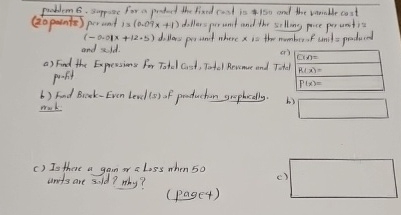 problem 6. suppose for a product the fixed cost is $150 and the variable cost
(20 points) per unit is (0.09x + 1) dollars per unit and the selling price per unit is
(-0.01x + 12.5) dollars per unit where x is the number of units produced
and sold.
a)
a) Find the Expressions for Total Cost, Total Revenue and Total
profit
C(x)=
R(x)=
P(x)=
b) Find Break-Even level(s) of production graphically.
b)
c) Is there a gain or a Loss when 50
units are sold? Why?
c)
(page4)